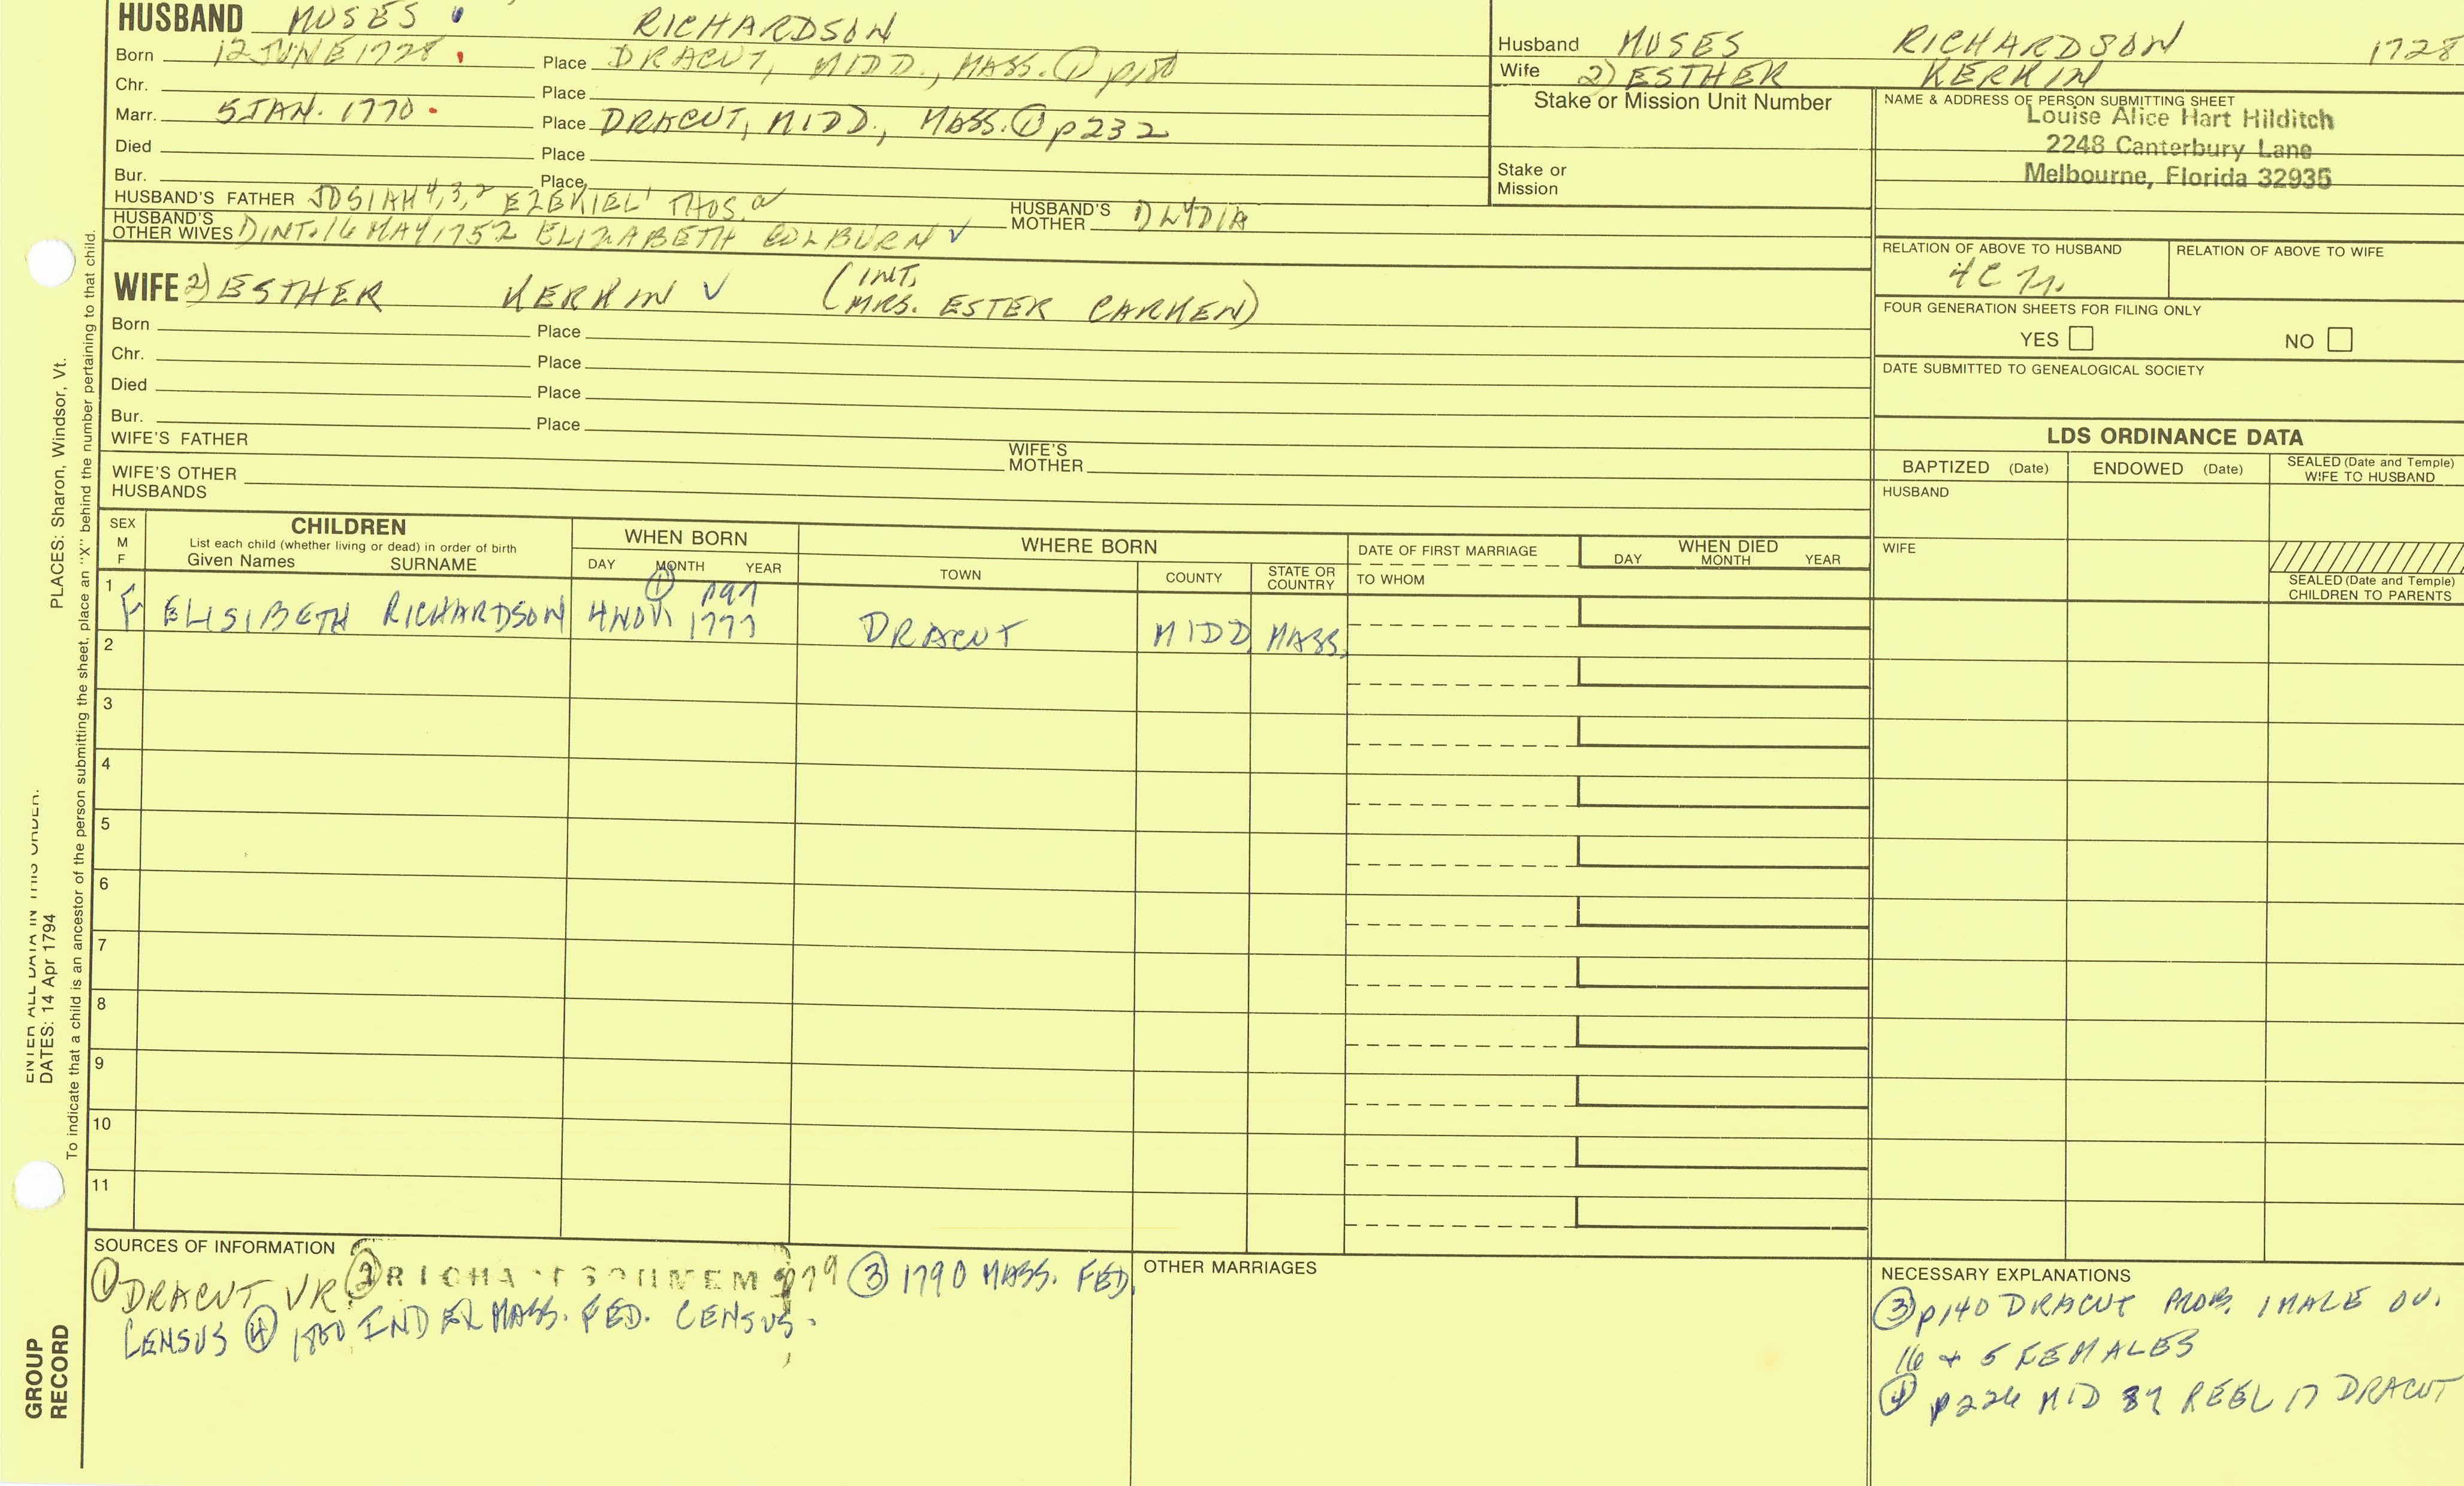 HUSBAND MOSES RICHARDSON
Born 12 JUNE 1728 Place DRACUT, MIDD., MASS. ① p180
Chr. Place
Marr. 5 JAN. 1770 Place DRACUT, MIDD., MASS. ① p232
Died Place
Bur. Place
HUSBAND'S FATHER JOSIAH 4,3,2 EZEKIEL 1 THOS. a
HUSBAND'S MOTHER 1) LYDIA
HUSBAND'S OTHER WIVES 1) INT. 16 MAY 1752 ELIZABETH COLBURN ✓
WIFE 2) ESTHER KERKIN ✓ (INT. MRS. ESTER CARKEN)
Born Place
Chr. Place
Died Place
Bur. Place
WIFE'S FATHER
WIFE'S MOTHER
WIFE'S OTHER HUSBANDS
Husband MOSES RICHARDSON 1728
Wife 2) ESTHER KERKIN
Stake or Mission Unit Number
Stake or
Mission
NAME & ADDRESS OF PERSON SUBMITTING SHEET
Louise Alice Hart Hilditch
2248 Canterbury Lane
Melbourne, Florida 32935
RELATION OF ABOVE TO HUSBAND RELATION OF ABOVE TO WIFE
FOUR GENERATION SHEETS FOR FILING ONLY
YES NO
DATE SUBMITTED TO GENEALOGICAL SOCIETY
LDS ORDINANCE DATA
BAPTIZED (Date) ENDOWED (Date) SEALED (Date and Temple) WIFE TO HUSBAND
HUSBAND
WIFE
SEALED (Date and Temple)
CHILDREN TO PARENTS
SEX M F
CHILDREN
List each child (whether living or dead) in order of birth
Given Names SURNAME
WHEN BORN
DAY MONTH YEAR
WHERE BORN
TOWN COUNTY STATE OR COUNTRY
DATE OF FIRST MARRIAGE
TO WHOM
WHEN DIED
DAY MONTH YEAR
①
1 F ELISIBETH RICHARDSON 4 NOV. 1777 DRACUT MIDD. MASS.
2
3
4
5
6
7
8
9
10
11
SOURCES OF INFORMATION
① DRACUT VR ② 3 1790 MASS. FED.
CENSUS ④ 1800 INDEX MASS. FED. CENSUS.
OTHER MARRIAGES
NECESSARY EXPLANATIONS
③ p140 DRACUT PROB. 1 MALE OV.
16 + 5 FEMALES
④ p226 MID 89 REEL 17 DRACUT
PLACES: Sharon, Windsor, Vt.
To indicate that a child is an ancestor of the person submitting the sheet, place an "X" behind the number pertaining to that child.
ENTER ALL DATA IN THIS ORDER:
DATES: 14 Apr 1794
GROUP
RECORD